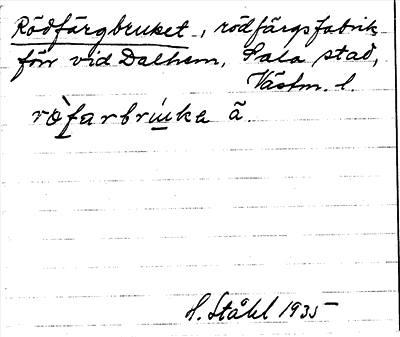 Rödfärgbruket, rödfärgsfabrik
förr vid Dalhem, Sala stad,
Västm. l.
rö̀farbru̍ka ã.
H. Ståhl 1935